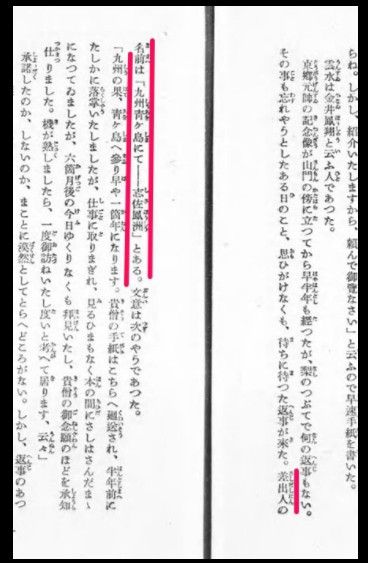 らね。しかし、紹介いたしますから、頼んで御覽なさい」と云ふので早速手紙を書いた。
雲水は金井鳳翔と云ふ人であつた。
東郷元帥の記念像が山門の傍に立つてから早半年も經つたが、梨のつぶてで何の返事もない。
その事も忘れやうとしたある日のこと、思ひがけなくも、待ちに待つた返事が來た。差出人の
名前は「九州靑ケ島にて――志佐鳳洲」とある。文意は次のやうであつた。
「九州の果、靑ケ島へ參り早や一箇年になります。貴僧の手紙はこちらへ廻送され、半年前に
たしかに落掌いたしましたが、仕事に取りまぎれ、見るひまもなく本の間にさしはさんだまゝ
になつてゐましたが、六箇月後の今日ゆくりなくも拜見いたし、貴僧の御念願のほどを承知
仕りました。機が熟しましたら、一度御訪ねいたし度いと考へて居ります、云々」
承諾したのか、しないのか、まことに漠然としてとらへどころがない。しかし、返事のあつ